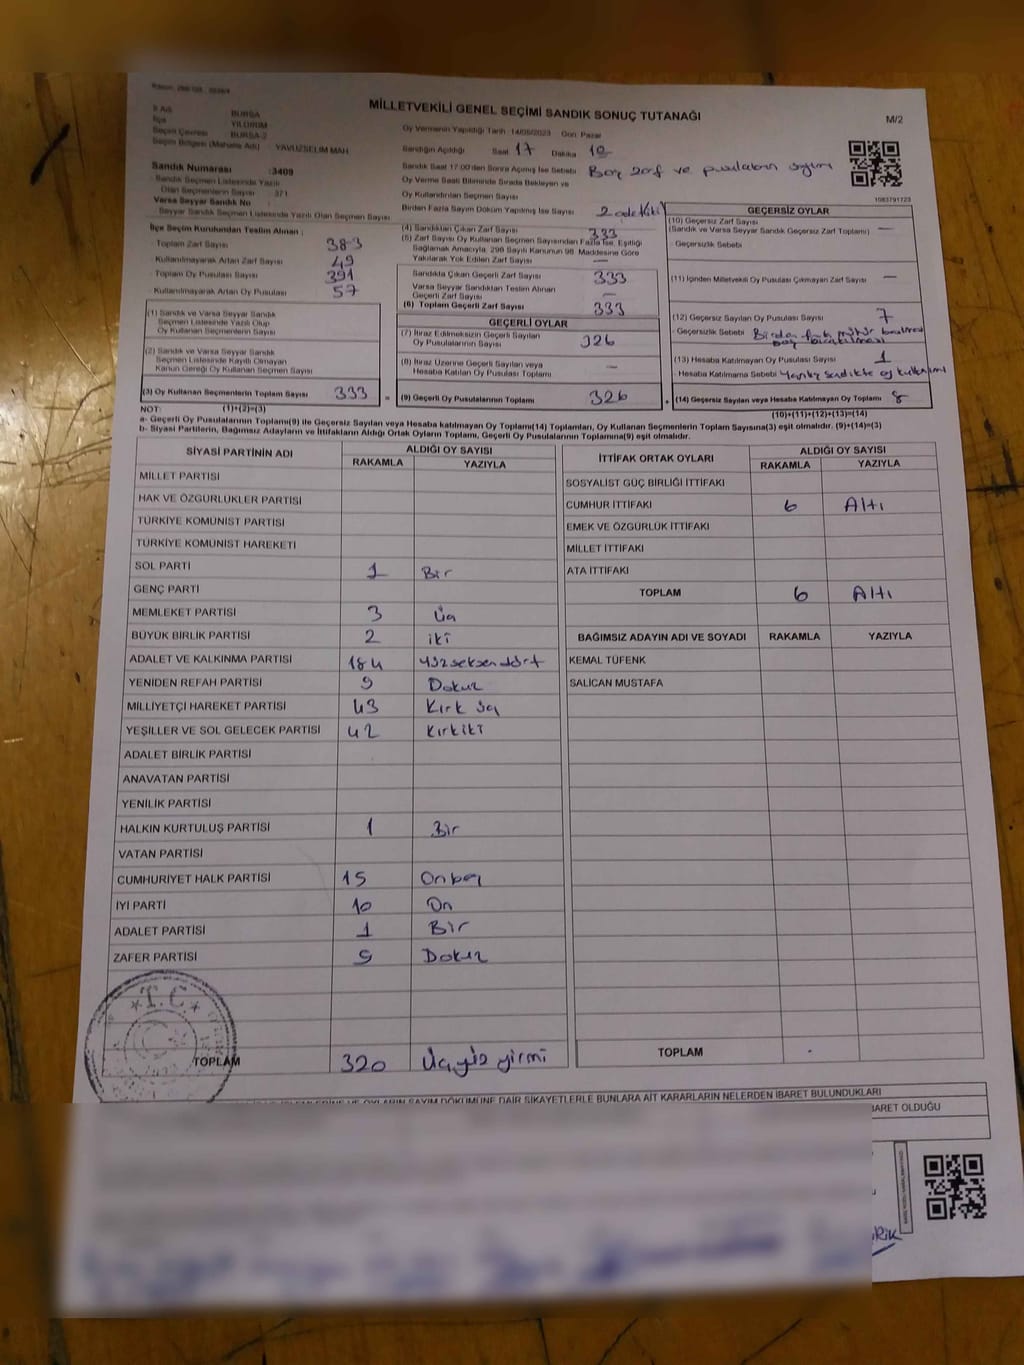 MİLLETVEKİLİ GENEL SEÇİMİ SANDIK SONUÇ TUTANAĞI
M/2
İl Adı BURSA
İlçe YILDIRIM
Seçim Çevresi BURSA-2
Seçim Bölgesi (Mahalle Adı) YAVUZSELİM MAH
Sandık Numarası :3409
Sandık Seçmen Listesinde Yazılı
Olan Seçmenlerin Sayısı : 371
Varsa Seyyar Sandık No
Seyyar Sandık Seçmen Listesinde Yazılı Olan Seçmen Sayısı
Oy Vermenin Yapıldığı Tarih 14/05/2023 Gün Pazar
Sandığın Açıldığı Saat 17 Dakika 10
Sandık Saat 17:00'den Sonra Açılmış İse Sebebi Boş zarf ve pusulaların sayımı
Oy Verme Saati Bitiminde Sırada Bekleyen ve
Oy Kullandırılan Seçmen Sayısı
Birden Fazla Sayım Döküm Yapılmış İse Sayısı
1083791723
İlçe Seçim Kurulundan Teslim Alınan :
Toplam Zarf Sayısı 383
Kullanılmayarak Artan Zarf Sayısı 49
Toplam Oy Pusulası Sayısı 391
Kullanılmayarak Artan Oy Pusulası 57
(1) Sandık ve Varsa Seyyar Sandık
Seçmen Listesinde Yazılı Olup
Oy Kullanan Seçmenlerin Sayısı
(2) Sandık ve Varsa Seyyar Sandık
Seçmen Listesinde Kayıtlı Olmayan
Kanun Gereği Oy Kullanan Seçmen Sayısı
(3) Oy Kullanan Seçmenlerin Toplam Sayısı 333 =
(4) Sandıktan Çıkan Zarf Sayısı 333
(5) Zarf Sayısı Oy Kullanan Seçmen Sayısından Fazla İse, Eşitliği
Sağlamak Amacıyla, 298 Sayılı Kanunun 98. Maddesine Göre
Yakılarak Yok Edilen Zarf Sayısı —
Sandıkta Çıkan Geçerli Zarf Sayısı 333
Varsa Seyyar Sandıktan Teslim Alınan
Geçerli Zarf Sayısı —
(6) Toplam Geçerli Zarf Sayısı 333
GEÇERLİ OYLAR
(7) İtiraz Edilmeksizin Geçerli Sayılan
Oy Pusulalarının Sayısı 326
(8) İtiraz Üzerine Geçerli Sayılan veya
Hesaba Katılan Oy Pusulası Toplamı —
(9) Geçerli Oy Pusulalarının Toplamı 326 +
GEÇERSİZ OYLAR
(10) Geçersiz Zarf Sayısı
(Sandık ve Varsa Seyyar Sandık Geçersiz Zarf Toplamı) —
Geçersizlik Sebebi
(11) İçinden Milletvekili Oy Pusulası Çıkmayan Zarf Sayısı —
(12) Geçersiz Sayılan Oy Pusulası Sayısı 7
Geçersizlik Sebebi Birden fazla mühür
(13) Hesaba Katılmayan Oy Pusulası Sayısı 1
Hesaba Katılmama Sebebi Yanlış sandıkta oy kullanımı
(14) Geçersiz Sayılan veya Hesaba Katılmayan Oy Toplamı 8
NOT: (1)+(2)=(3)
(10)+(11)+(12)+(13)=(14)
a- Geçerli Oy Pusulalarının Toplamı(9) ile Geçersiz Sayılan veya Hesaba Katılmayan Oy Toplamı(14) Toplamları, Oy Kullanan Seçmenlerin Toplam Sayısına(3) eşit olmalıdır. (9)+(14)=(3)
b- Siyasi Partilerin, Bağımsız Adayların ve İttifakların Aldığı Ortak Oyların Toplamı, Geçerli Oy Pusulalarının Toplamına(9) eşit olmalıdır.
SİYASİ PARTİNİN ADI ALDIĞI OY SAYISI
RAKAMLA YAZIYLA
MİLLET PARTİSİ
HAK VE ÖZGÜRLÜKLER PARTİSİ
TÜRKİYE KOMÜNİST PARTİSİ
TÜRKİYE KOMÜNİST HAREKETİ
SOL PARTİ 1 Bir
GENÇ PARTİ
MEMLEKET PARTİSİ 3 Üç
BÜYÜK BİRLİK PARTİSİ 2 iki
ADALET VE KALKINMA PARTİSİ 184 yüzseksendört
YENİDEN REFAH PARTİSİ 9 Dokuz
MİLLİYETÇİ HAREKET PARTİSİ 43 Kırk üç
YEŞİLLER VE SOL GELECEK PARTİSİ 42 Kırkiki
ADALET BİRLİK PARTİSİ
ANAVATAN PARTİSİ
YENİLİK PARTİSİ
HALKIN KURTULUŞ PARTİSİ 1 Bir
VATAN PARTİSİ
CUMHURİYET HALK PARTİSİ 15 Onbeş
İYİ PARTİ 10 On
ADALET PARTİSİ 1 Bir
ZAFER PARTİSİ 9 Dokuz
T.C
TOPLAM 320 Üçyüz yirmi
İTTİFAK ORTAK OYLARI ALDIĞI OY SAYISI
RAKAMLA YAZIYLA
SOSYALİST GÜÇ BİRLİĞİ İTTİFAKI
CUMHUR İTTİFAKI 6 Altı
EMEK VE ÖZGÜRLÜK İTTİFAKI
MİLLET İTTİFAKI
ATA İTTİFAKI
TOPLAM 6 Altı
BAĞIMSIZ ADAYIN ADI VE SOYADI RAKAMLA YAZIYLA
KEMAL TÜFENK
SALİCAN MUSTAFA
TOPLAM -
OYLARIN SAYIM DÖKÜMÜNE DAİR ŞİKAYETLERLE BUNLARA AİT KARARLARIN NELERDEN İBARET BULUNDUKLARI
İBARET OLDUĞU